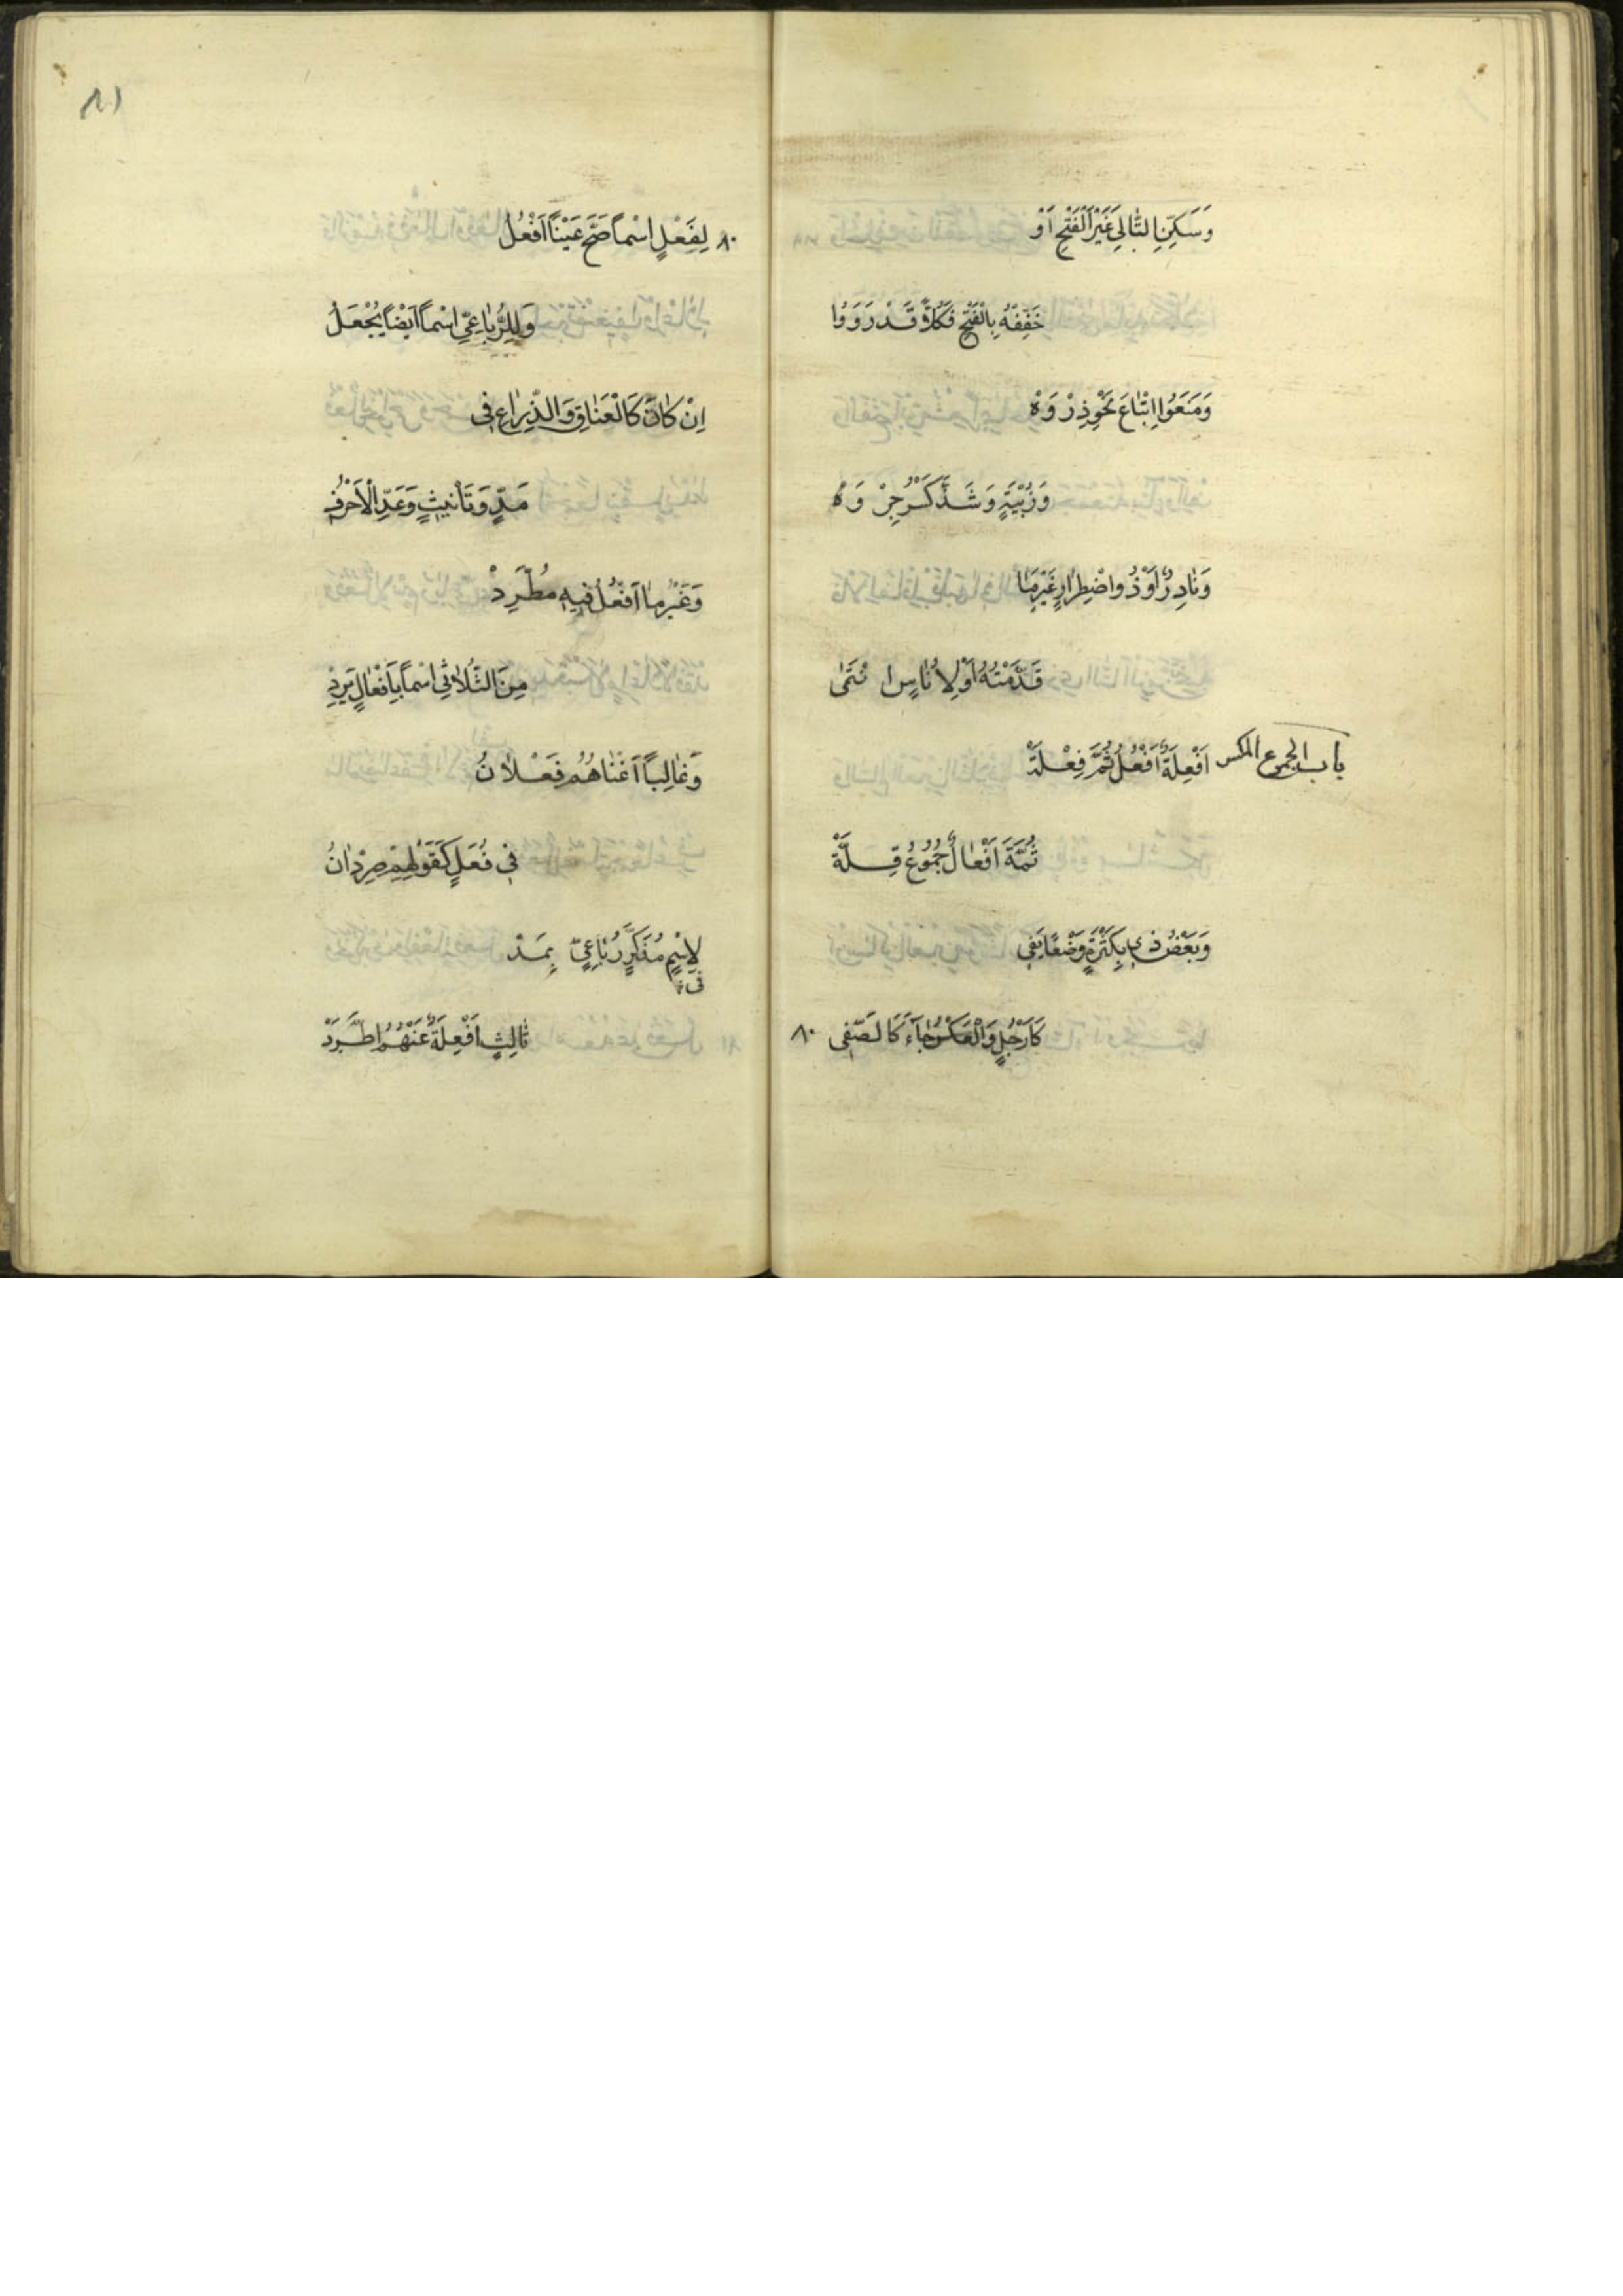 وَسَكِّنِ التَّالِيَ غَيْرَ الْفَتْحِ اَوْ
خَفِّفْهُ بِالْفَتْحِ فَكُلًّا قَدْ رَوَوْا
وَمَنَعُوا اِتْبَاعَ نَحْوِ ذِرْوَهْ
وَزُبْيَةٍ وَشَذَّ كَسْرُ جِرْوَهْ
وَنَادِرٌ اَوْ ذُو اضْطِرَارٍ غَيْرُ مَا
قَدَّمْتُهُ اَوْ لِاُنَاسٍ انْتَمٰى
باب الجموع المكسر
اَفْعِلَةٌ اَفْعُلُ ثُمَّ فِعْلَةْ
ثُمَّةَ اَفْعَالٌ جُمُوعُ قِلَّةْ
وَبَعْضُ ذِي بِكَثْرَةٍ وَضْعًا يَفِي
كَاَرْجُلٍ وَالْعَكْسُ جَآءَ كَالصُّفِى ٨٠
٨١
٨٠ لِفَعْلٍ اسْماً صَحَّ عَيْنًا اَفْعُلُ
وَلِلرُّبَاعِيِّ اسْماً اَيْضاً يُجْعَلُ
اِنْ كَانَ كَالْعَنَاقِ وَالذِّرَاعِ فِى
مَدٍّ وَتَأْنِيثٍ وَعَدِّ الْاَحْرُفِ
وَغَيْرُ مَا اَفْعُلُ فِيهِ مُطَّرِدْ
مِنَ الثُّلَاثِي اسْماً بِاَفْعَالٍ يَرِدْ
وَغَالِباً اَغْنَاهُمُ فِعْلَانُ
فِي فُعَلٍ كَقَوْلِهِمْ صِرْدَانُ
لِاسْمٍ مُذَكَّرٍ رُبَاعِيٍّ بِمَدْ
فى
ثَالِثٍ اَفْعِلَةٌ عَنْهُمُ اطَّرَدْ